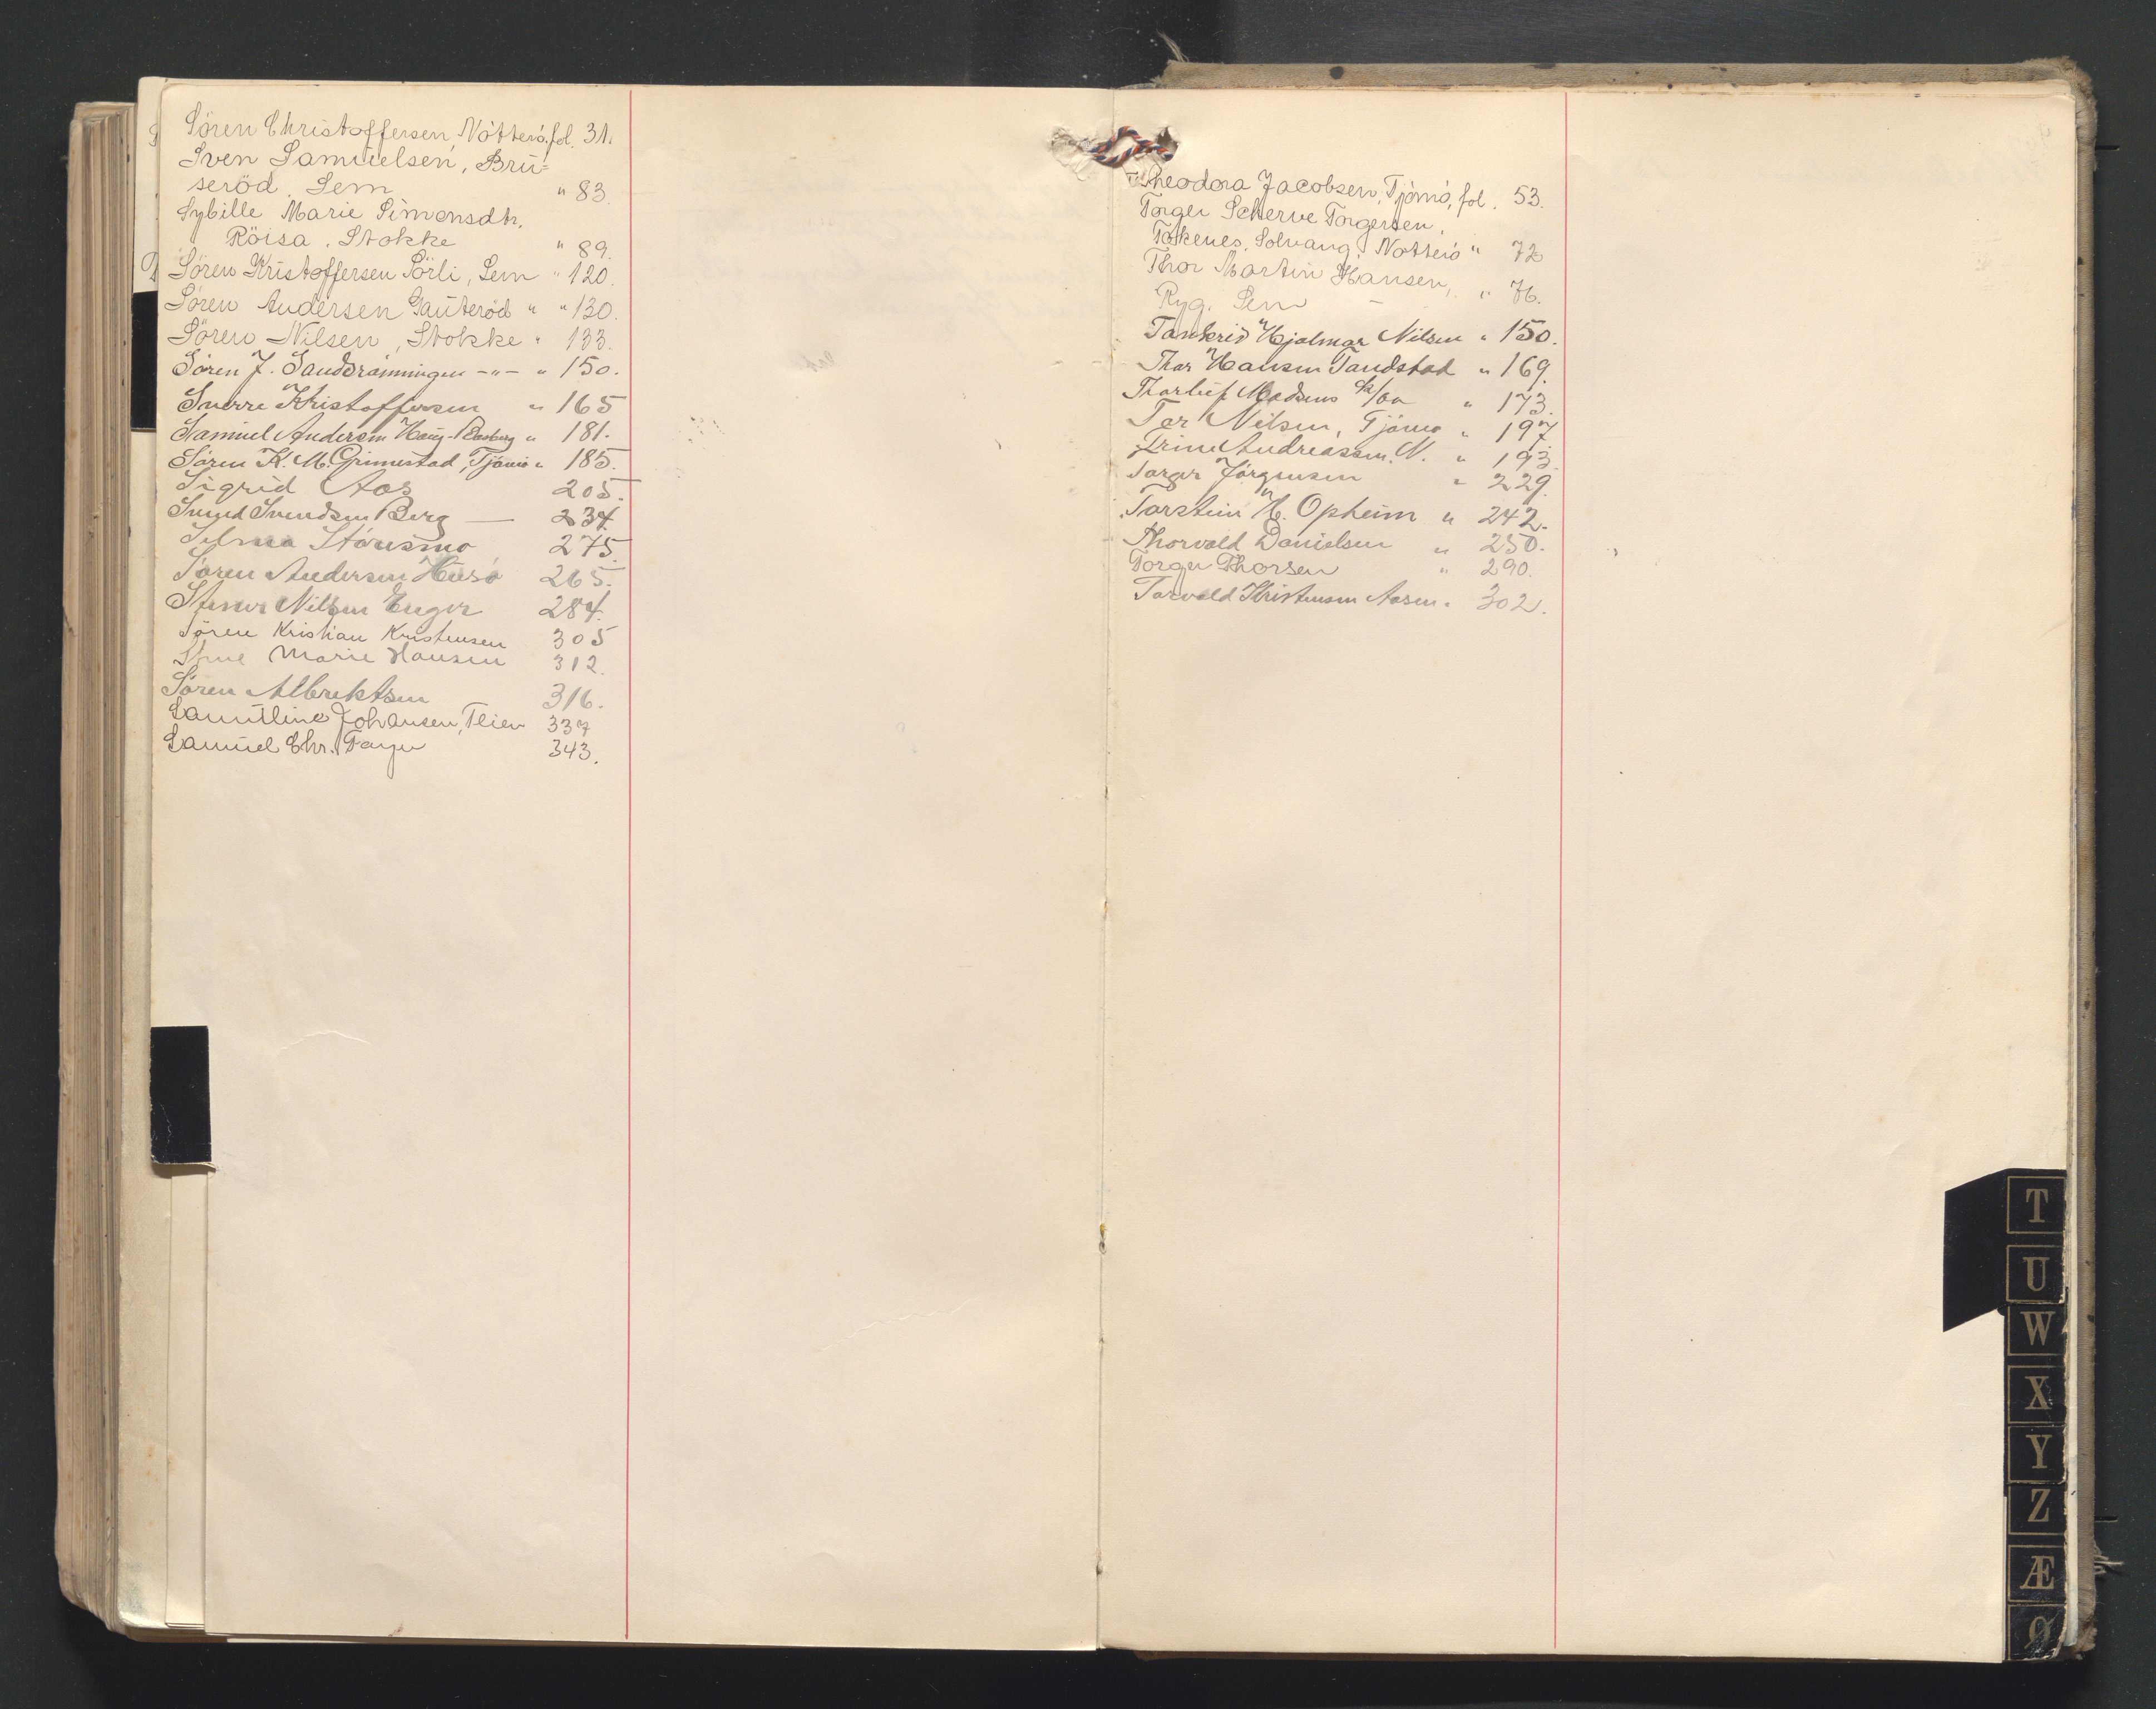 Sören Christoffersen, Nötterö. fol. 31.
Sven Samuelsen, Brü-
seröd, Sem " 83.
Sybille Marie Simonsdtr.
Röisa, Stokke " 89.
Sören Kristoffersen Sörli, Sem " 120.
Sören Andersen Gauteröd " " 130.
Sören Nilsen, Stokke " 133.
Sören J. Sand -"- " 150.
Sverre Kristoffersen " 165
Samuel Andersen Haug " 181.
Sören K. M. Grimestad, Tjömö " 185.
Sigrid Aas 205.
Svend Svendsen Berg — 234.
Selma 275.
Sören Andersen Husö 265.
Nilsen Enger 284.
Sören Kristian Kristensen 305
Stine Marie Hansen 312.
Sören Albrektsen 316.
Samueline Johansen, Teien 337
Samuel Chr. Fayer 343.
Theodora Jacobsen, Tjömö, fol. 53.
Torger Scherve Torgersen,
Torkenes, Solvang, Nötterö " 72
Thor Martin Hansen,
Ryg. Sem " 76.
Tankrid Hjalmar Nilsen " 150.
Thor Hansen Tandstad " 169.
Thorleif Madsens " 173.
Tor Nilsen, Tjömö " 197.
Trine Andreassen. N. " 193.
Torger Jörgensen " 229.
Torstein H. Opheim " 242.
Thorvald Danielsen " 250.
Torger Thorsen " 290.
Torvald Kristensen Aasen " 302.
T
U
W
X
Y
Z
Æ
Ø